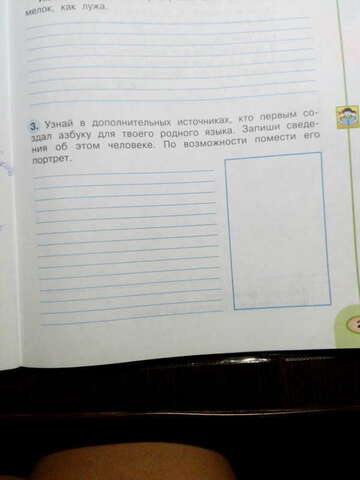 мелок, как лужа.
3. Узнай в дополнительных источниках, кто первым со-
здал азбуку для твоего родного языка. Запиши сведе-
ния об этом человеке. По возможности помести его
портрет.
2